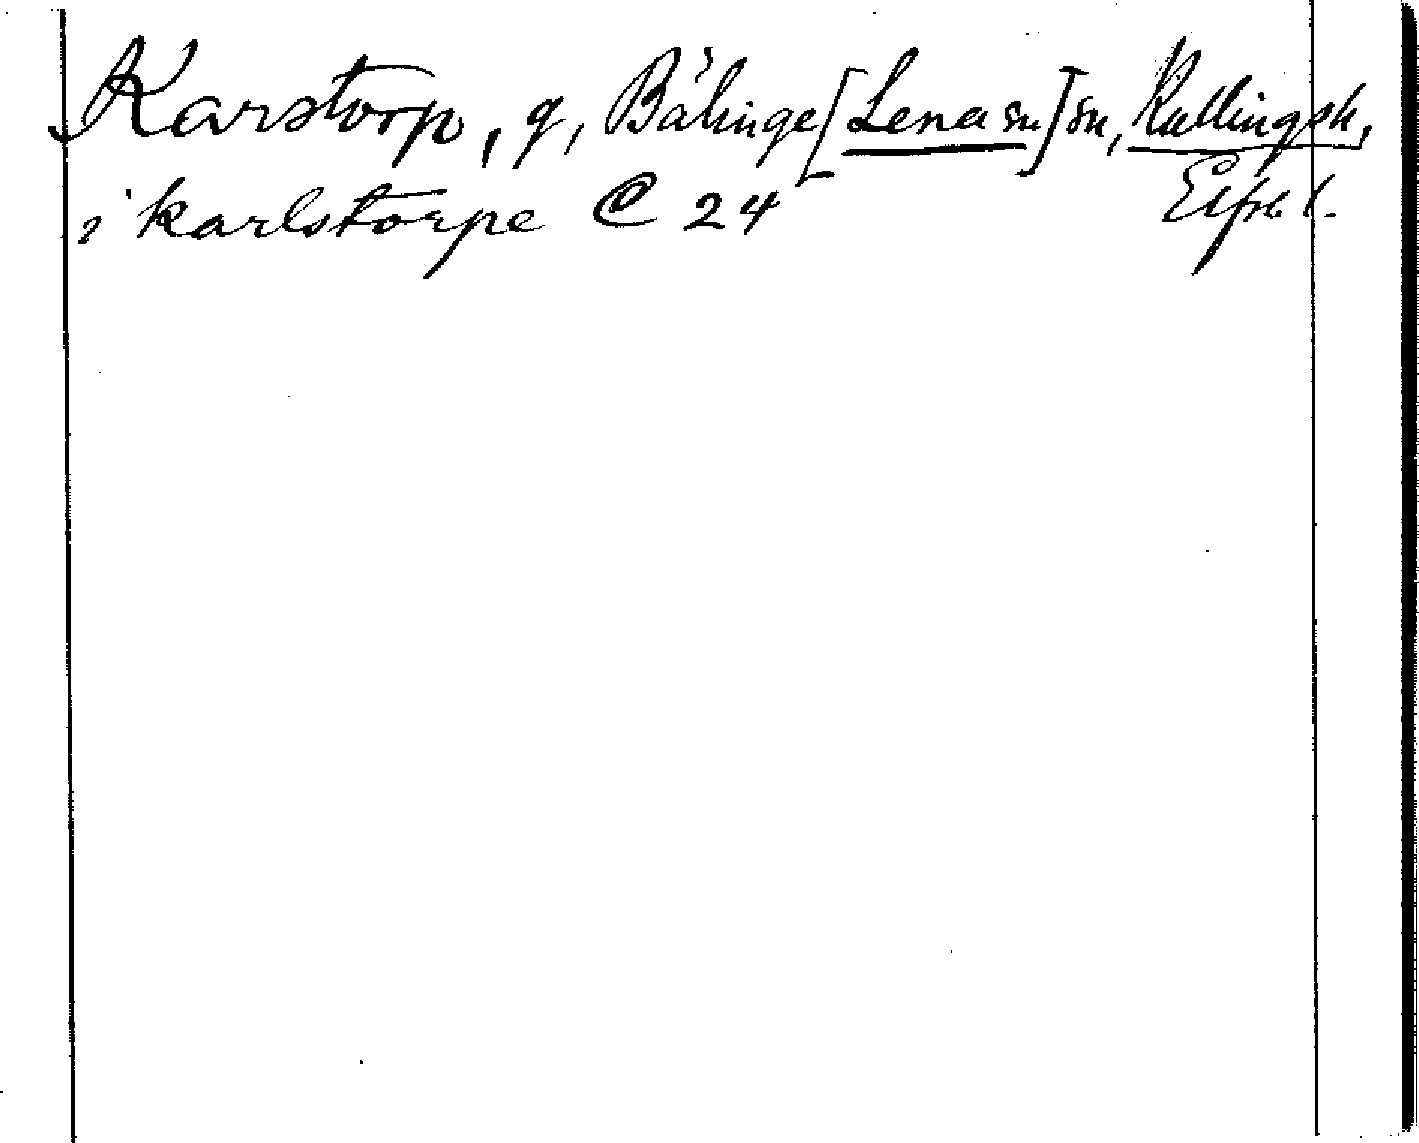 Karstorp, g, Bälinge [Lena sn] sn, Kullings h,
i karlstorpe C 24 Elfsb. l.